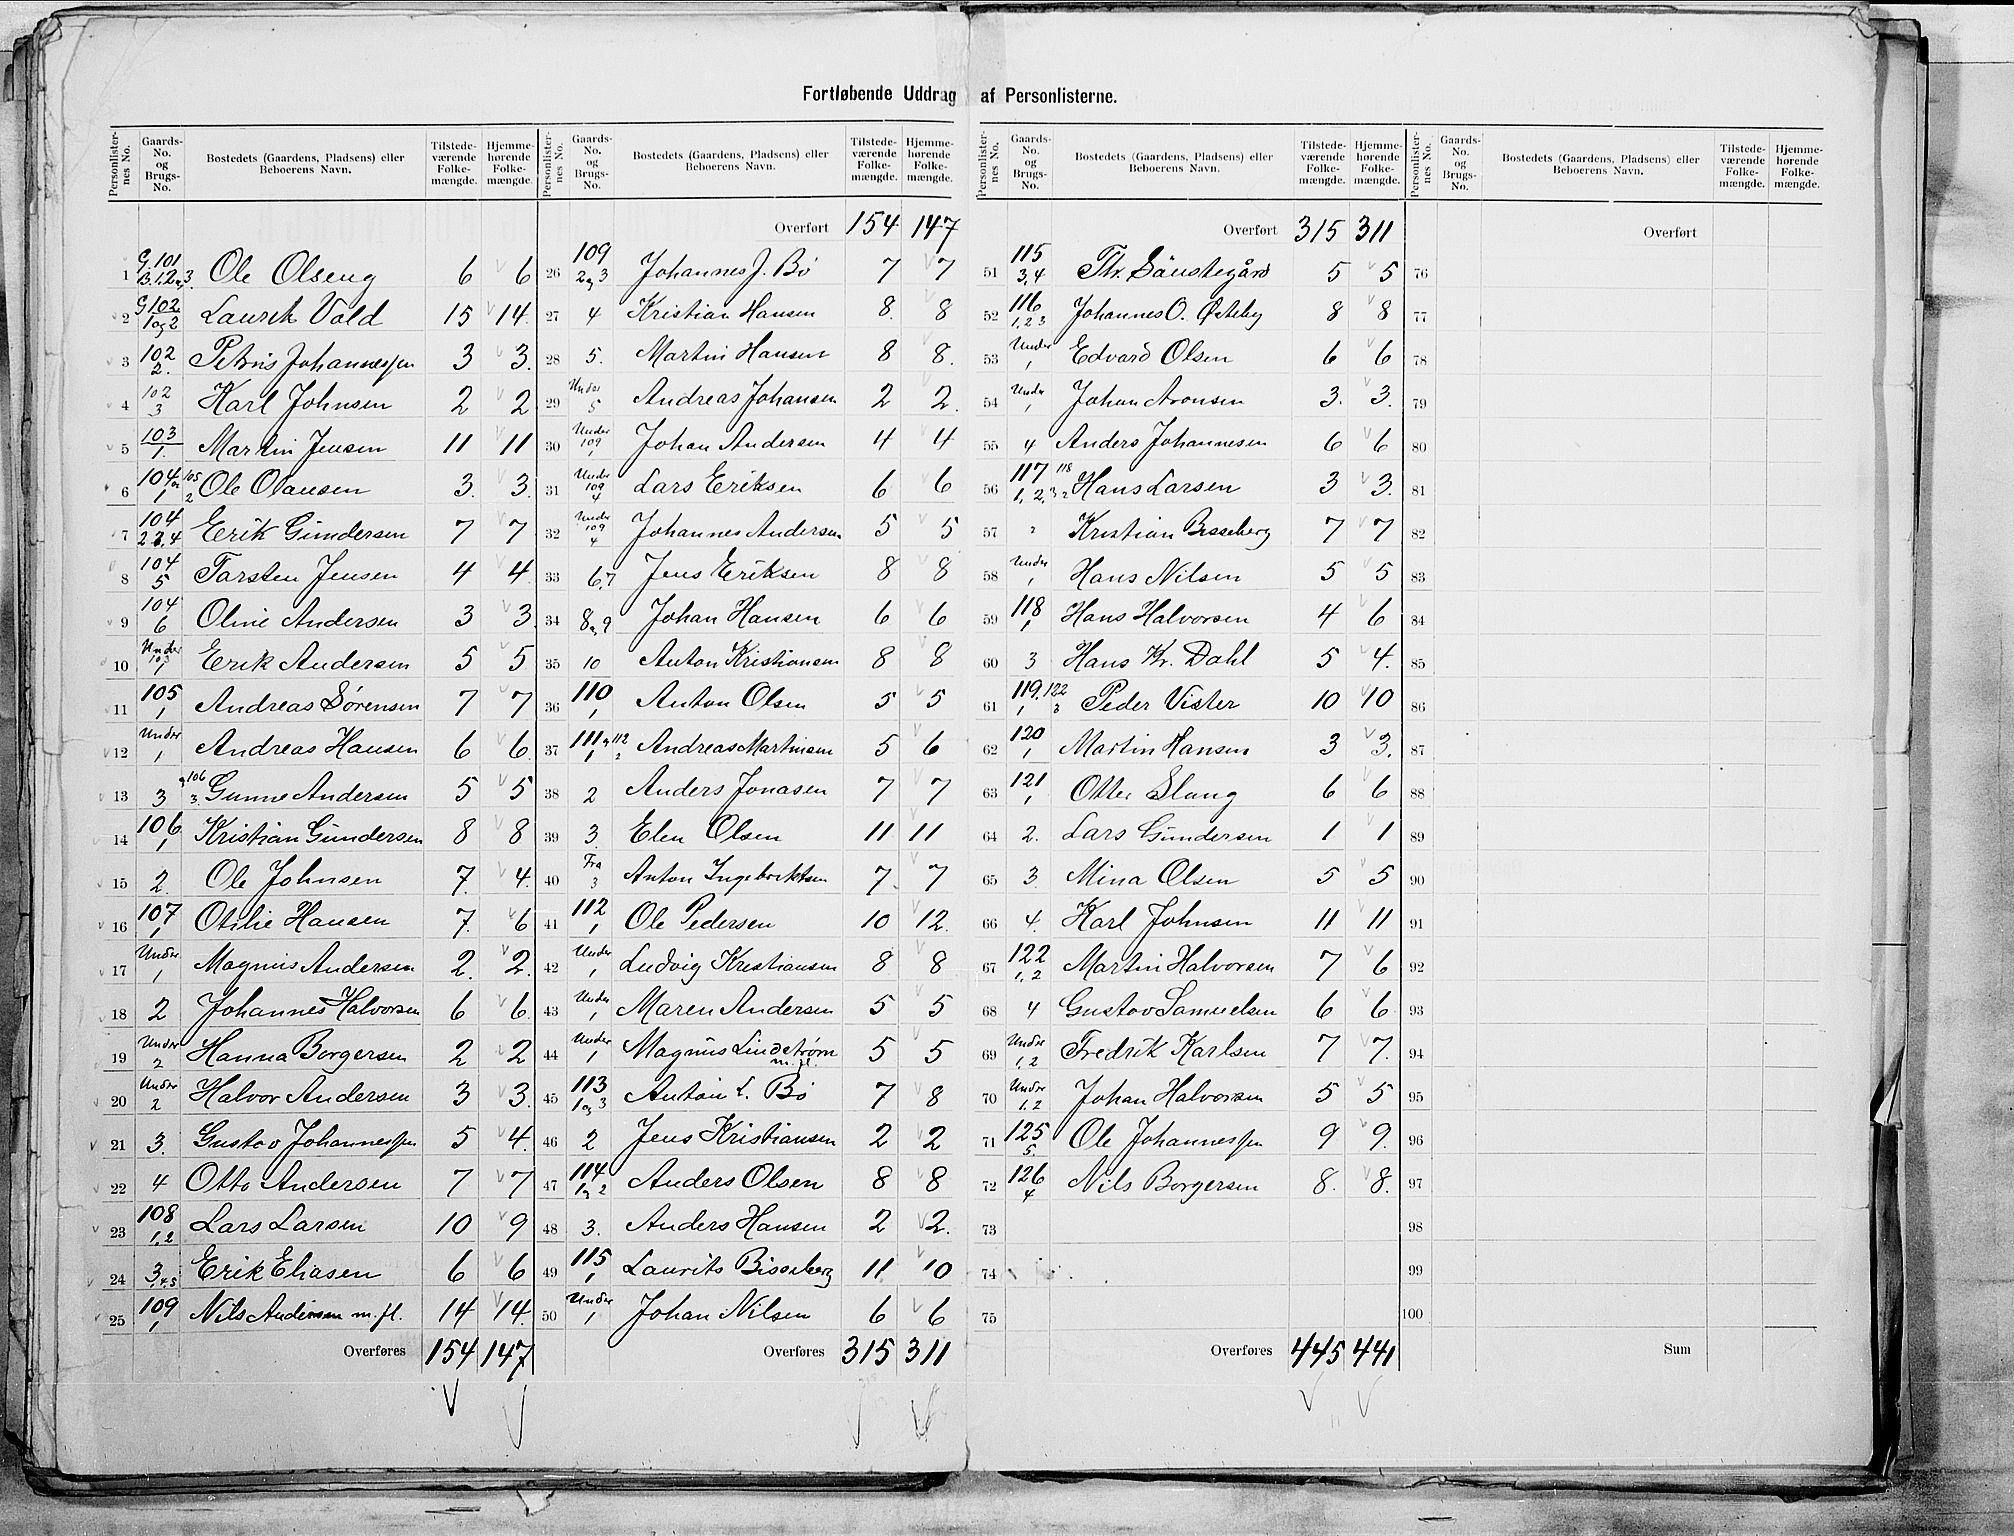 Fortløbende Uddrag af Personlisterne.
Personlister-nes No. Gaards-No. og Brugs-No. Bostedets (Gaardens, Pladsens) eller Beboerens Navn. Tilstede-værende Folke-mængde. Hjemme-hørende Folke-mængde.
1 G. 101 B. 1, 2 og 3. Ole Olseng 6 6
2 G 102 1 og 2 Laurek Vold 15 14.
3 102 2. Petrus Johannessen 3 3.
4 102 3 Karl Johnsen 2 2
5 103 1. Martin Jensen 11 11
6 104 1 105 2 Ole Olausen 3. 3.
7 104 2 3, 4 Erik Gundersen 7 7
8 104 5 Tarsten Jensen 4 4
9 104 6 Oline Andersen 3 3
10 Under 103 1 Erik Andersen 5 5
11 105 1 Andreas Sørensen 7 7
12 Under 1 Andreas Hansen 6 6
13 3 106 3. Gunne Andersen 5 5
14 106 1 Kristian Gundersen 8 8
15 2. Ole Johnsen 7. 4.
16 107 1 Otilie Hansen 7. 6
17 Under 1 Magnus Andersen 2. 2.
18 2 Johannes Halvorsen 6 6.
19 Under 2 Hanna Borgersen 2 2
20 Under 2 Halvor Andersen 3 3.
21 3. Gustav Johannessen 5 4.
22 4 Otto Andersen 7 7
23 108 1,2 Lars Larsen 10 9
24 3, 4, 5 Erik Eliasen 6 6
25 109 1 Nils Andersen m. fl. 14 14.
Overføres 154 147
Personlister-nes No. Gaards-No. og Brugs-No. Bostedets (Gaardens, Pladsens) eller Beboerens Navn. Tilstede-værende Folke-mængde. Hjemme-hørende Folke-mængde.
Overført 154 147
26 109 2 og 3 Johannes J. Bø 7 7
27 4 Kristian Hansen 8. 8
28 5. Martin Hansen 8 8.
29 Under 5 Andreas Johansen 2 2.
30 Under 109 1 Johan Andersen 4 4
31 Under 109 4 Lars Eriksen 6 6
32 Under 109 4 Johannes Andersen 5 5
33 6,7 Jens Eriksen 8 8
34 8 og 9 Johan Hansen 6 6
35 10 Anton Kristiansen 8 8
36 110 1 Anton Olsen 5 5
37 111 1 112 2 Andreas Martinsen 5 6
38 2 Anders Jonasen 7 7
39 3. Elen Olsen 11 11
40 Fra 3 Anton Ingebrektsen 7. 7
41 112 1 Ole Pedersen 10 12.
42 Under 1 Ludvig Kristiansen 8 8
43 Under 1 Maren Andersen 5 5
44 Under 1 Magnus Lindstrøm m. fl. 5 5
45 113 1 og 3 Anton L. Bø 7 8
46 2 Jens Kristiansen 2 2
47 114 1 og 2 Anders Olsen 8 8
48 3. Anders Hansen 2 2.
49 115 1 Laurits Bisseberg 11 10
50 Under 1 Johan Nilsen 6 6
Overføres 315 311
Personlister-nes No. Gaards-No. og Brugs-No. Bostedets (Gaardens, Pladsens) eller Beboerens Navn. Tilstede-værende Folke-mængde. Hjemme-hørende Folke-mængde.
Overført 315 311
51 115 3, 4 Thr. Sønstegård 5 5
52 116 1, 2 3 Johannes O. Østeby 8 8
53 Under 1 Edvard Olsen 6 6
54 Under 1 Johan Aronsen 3. 3.
55 4 Anders Johannesen 6 6
56 117 1, 2, 3 118 2 Hans Larsen 3 3.
57 Kristian Bisseberg 7 7
58 Under 1 Hans Nilsen 5 5
59 118 1 Hans Halvorsen 4 6
60 3 Hans Kr. Dahl 5 4.
61 119. 1 122 3 Peder Vister 10 10
62 120 1 Martin Hansen 3 3.
63 121 1 Otter Slang 6 6
64 2. Lars Gundersen 1 1
65 3. Mina Olsen 5 5
66 4. Karl Johnsen 11 11
67 122 1, 2 Martin Halvorsen 7 6
68 4 Gustav Samuelsen 6 6
69 Under 1,2 Fredrik Karlsen 7 7.
70 Under 1,2 Johan Halvorsen 5 5
71 125 5. Ole Johannessen 9 9.
72 126 4 Nils Borgersen 8. 8.
73
74
75
Overføres 445 441
Personlister-nes No. Gaards-No. og Brugs-No. Bostedets (Gaardens, Pladsens) eller Beboerens Navn. Tilstede-værende Folke-mængde. Hjemme-hørende Folke-mængde.
Overført
76
77
78
79
80
81
82
83
84
85
86
87
88
89
90
91
92
93
94
95
96
97
98
99
100
Sum